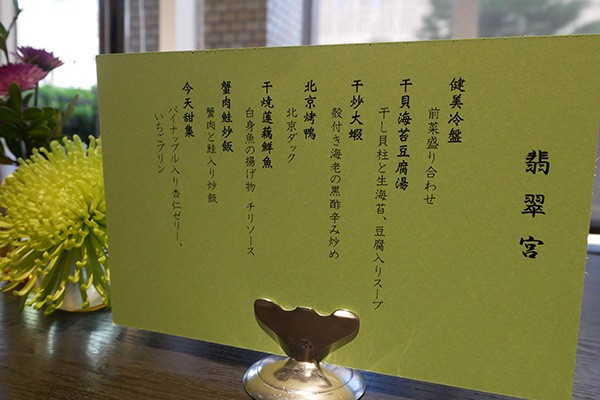 翡翠宮
健美冷盤
前菜盛り合わせ
干貝海苔豆腐湯
干し貝柱と生海苔、豆腐入りスープ
干炒大蝦
殻付き海老の黒酢辛み炒め
北京烤鴨
北京ダック
干焼蓮藕鮮魚
白身魚の揚げ物 チリソース
蟹肉鮭炒飯
蟹肉と鮭入り炒飯
今天甜集
パイナップル入り杏仁ゼリー、
いちごプリン